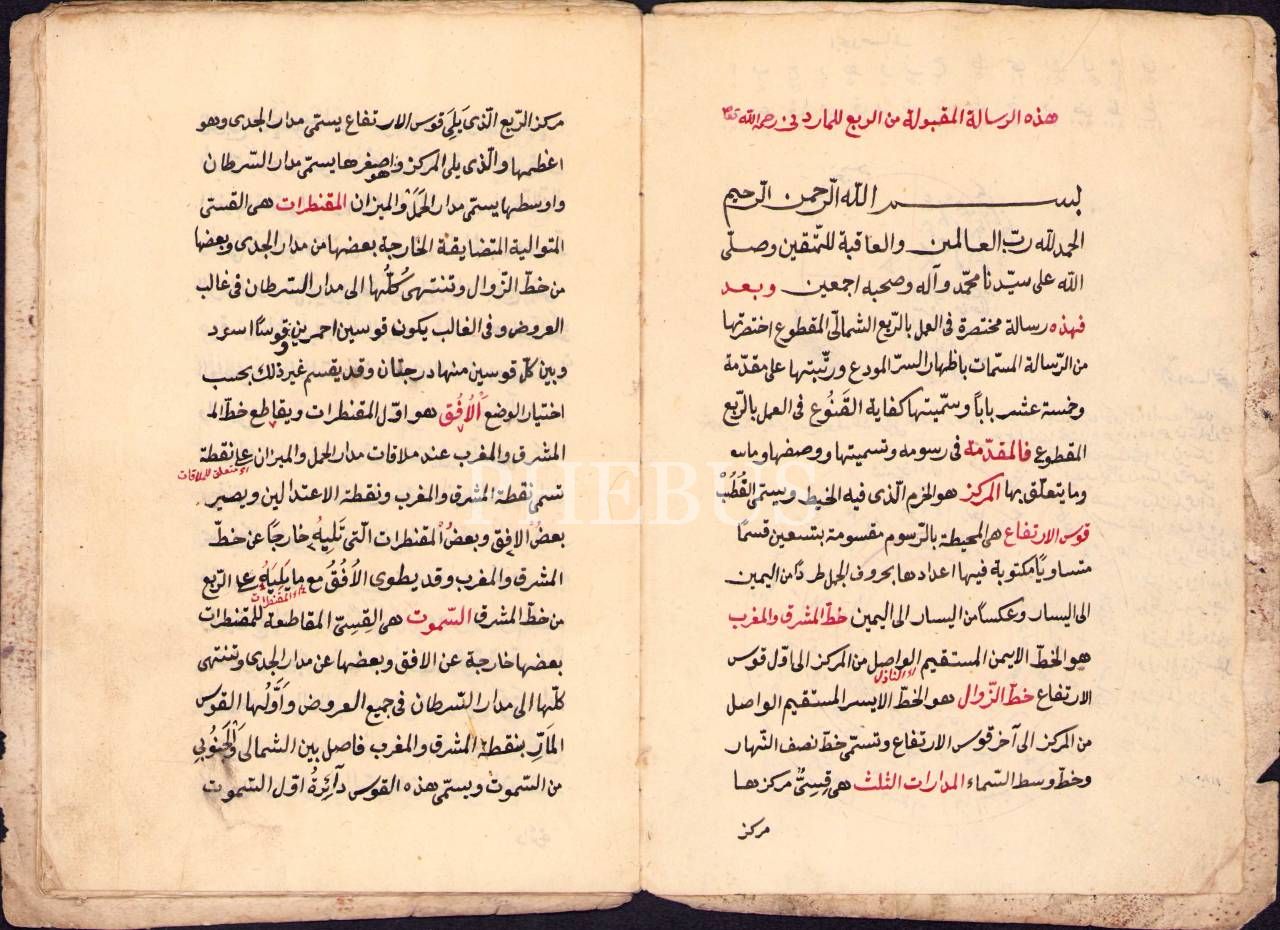 هذه الرسالة المقبولة من الربع للماردينى رحمه الله تعا
بسم الله الرّحمن الرّحيم
الحمد لله ربّ العالمين والعاقبة للمتّقين وصلّى
الله على سيّدنا محمّد وآله وصحبه اجمعين وبعد
فهذه رسالة مختصرة فى العمل بالرّبع الشمالىّ المقطوع اختصرتها
من الرّسالة المسمّات باظهار السرّ المودع ورتّبتها على مقدّمة
وخمسة عشر باباً وسمّيتها كفاية القَنُوع فى العمل بالرّبع
المقطوع فالمقدّمة فى رسومه وتسميتها ووصفها
وما يتعلّق بها المركز هو الخرم الّذى فيه الخيط ويسمّى القُطُبْ
قوس الارتفاع هى المحيطة بالرّسوم مقسومة بتسعين قسمًا
متساوياً مكتوبة فيها اعدادها بحروف الجمل طردًا من اليمين
الى اليسار وعكساً من اليسار الى اليمين خطّ المشرق والمغرب
هو الخطّ الايمن المستقيم الواصل من المركز الى اوّل قوس
الارتفاع خطّ الزّوال هو الخطّ الايسر المستقيم الواصل
من المركز الى آخر قوس الارتفاع وتسمّى خطّ نصف النّهار
وخطّ وسط السّماء المدارات الثلث هى قِسِىٌّ مركزها
مركز
مركز الرّبع الّذى يَلِى قوس الارتفاع يسمّى مدار الجدى وهو
اعظمها والّذى يلى المركز وهو اصغرها يسمّى مدار السّرطان
واوسطها يسمّى مدار الحَمَل والميزان المقنطرات هى القسىّ
المتوالية المتضايقة الخارجة بعضها من مدار الجدى وبعضها
من خطّ الزّوال وتنتهى كُلُّها الى مدار السّرطان فى غالب
العروض وفى الغالب يكون قوسين احمرين وقوسًا اسود
وبين كلّ قوسين منها درجتان وقد يقسم غير ذلك بحسب
اختيار الوضع اَلْاُفُق هو اوّل المقنطرات ويقاطع خطّ الـ
المشرق والمغرب عند ملاقات مدار الحمل والميزان على نقطة
اى متعلق للملاقات
تسمى نقطة المشرق والمغرب ونقطة الاعتدالين ويصير
بعضُ الافق وبعضُ المقنطرات الّتى تَلِيهِ خارجًا عن خطّ
المشرق والمغرب وقد يطوى الاُفُقُ مع ما يَلِيَهُ على الرّبع
من المقنطرات
من خطّ المشرق السّموت هى القِسِىّ المقاطعة للمقنطرات
بعضها خارجة عن الافق وبعضها عن مدار الجدى وتنتهى
كلّها الى مدار السّرطان فى جميع العروض وَاَوَّلُها القوس
المَارّ بنقطة المشرق والمغرب فاصل بين الشمالى والجنوبى
من السّموت ويسمّى هذه القوس دآئِرةُ اوّل السّموت
PHEBUS